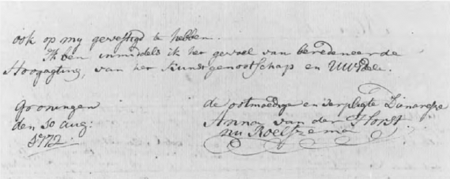 ook op my gevestigd te hebben.
Ik ben inmiddels ik het gevoel van beredeneerde
Hoogagting, van het Kunstgenootschap en UWEdele.
Groningen
den 30 Aug:
1772
de ootmoedige en verpligte Dienaresse
Anna van der Horst.
nu Roelfzema